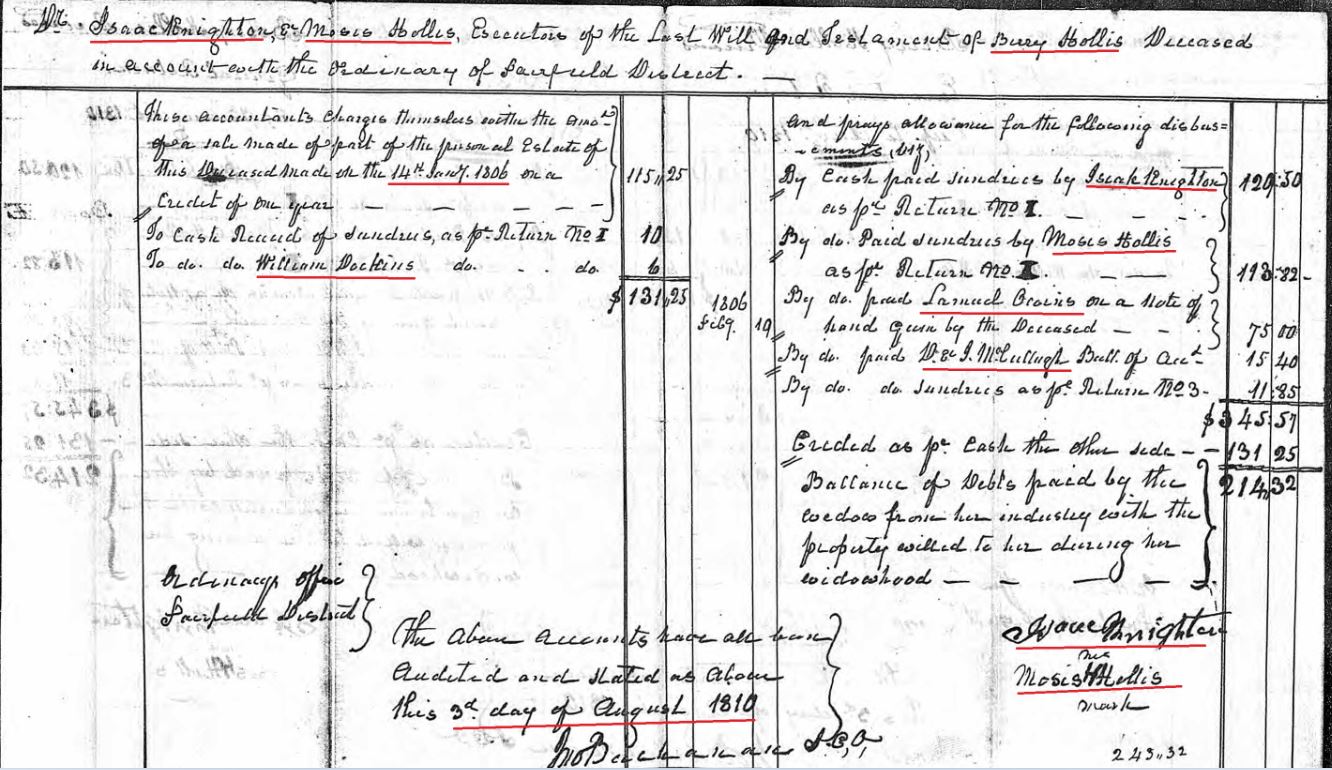 Dr. Isaac Knighton, & Mosis Hollis, Executors of the Last Will and Testament of Burry Hollis Deceased
in account with the Ordinary of Fairfield District. —
These accountants charges themselves withe the amot
of a sale made of part of the personal Estate of
this Deceased made on the 14th Jany. 1806 on a
Credit of one year — — — 115,, 25
To Cash Receved of sundres, as pr Return No I 10
To do. do. William Dockins do. - do. 6
$ 131,, 25
1806
19
and prays allowance for the following disbus=
ements, viz,
By Cash paid sundres by Isaac Knighton
as pr Return No I. - - - - 129:50
By do. Paid sundres by Mosis Hollis
as pr Return No. I. - - - 113:82-
By do. paid Lamuel on a Note of
hand by the Deceased — — - 75 00
By do. paid D. & J. McCullugh Ball. of acct - 15 40
By do. do. sundres as pr Return No 3 - 11:85
$ 345:57
Creded as pr Cash the other side - - 131 25
Ballance of Debts paid by the 214,32
wedow from her industry with the
property willed to her during her
widowhood — — — —
Ordinarys office
Fairfield District
The above accounts have all been
Audited and stated as above
this 3d. day of August 1810
Jno Buchanan
Isaac Knighton
his
Mosis H Hollis
mark
243,,32